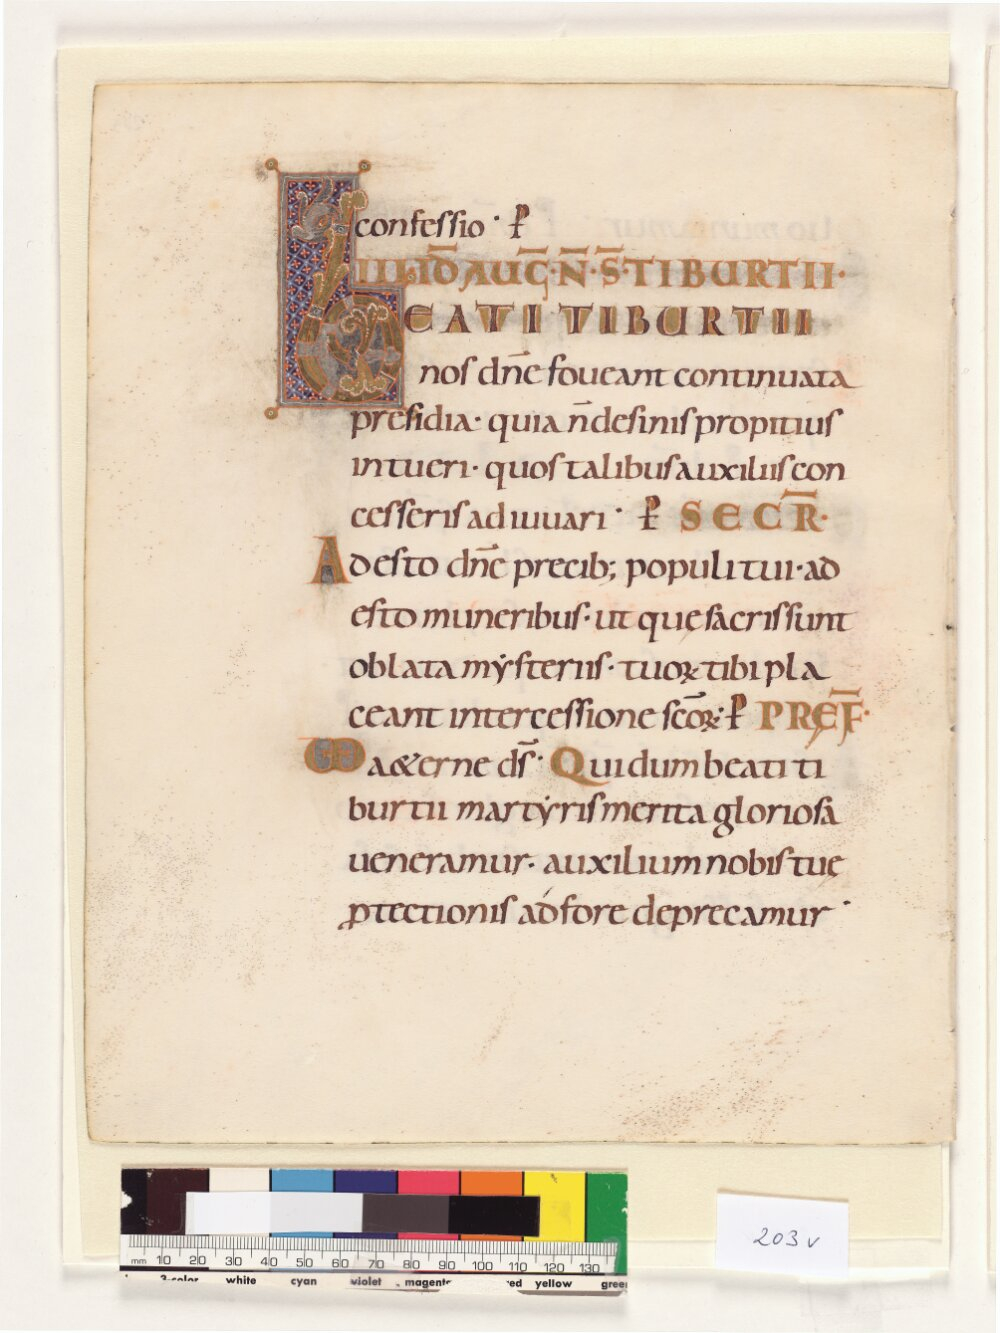 confeſſio · ꝑ
IIII·ID̄ AUḠ·N̄·S̄·TIBURTII·
BEATI TIBURTII
noſ dn̄e foueant continuata
preſidia· quia n̄ deſiniſ propitiuſ
intueri· quoſ talibuſ auxiliiſ con
ceſſeriſ adiuuari · ꝑ SECR̄·
Adeſto dn̄e precib; populi tui· ad
eſto muneribuſ· ut que ſacriſ ſunt
oblata mẏſteriiſ· tuoꝝ tibi pla
ceant interceſſione ſc̄oꝝ· ꝑ PREF̄·
UD a&erne dſ̄· Qui dum beati ti
burtii martẏriſ merita glorioſa
ueneramur· auxilium nobiſ tuę
ꝓtectioniſ adfore deprecamur ·
203 v
mm 10 20 30 40 50 60 70 80 90 100 110 120 130
3-color white cyan violet magenta red yellow green